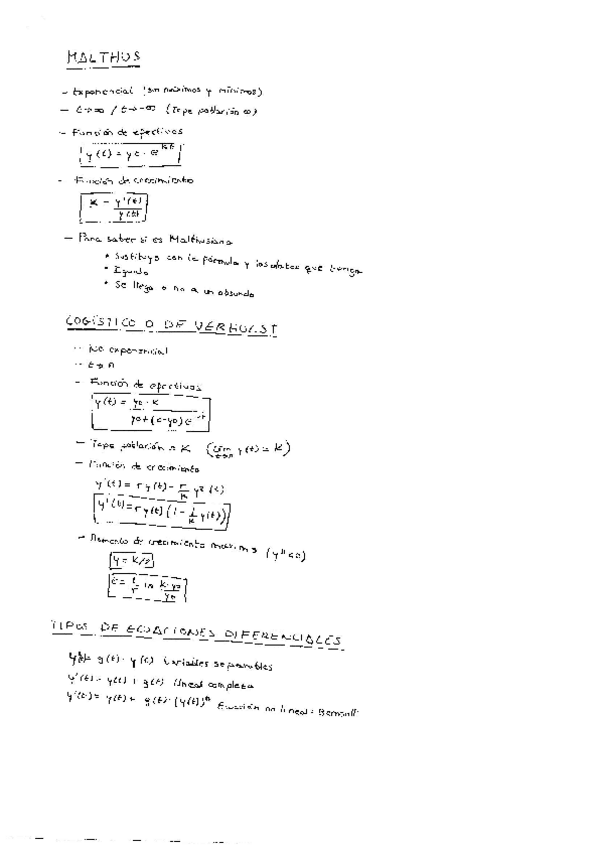 MALTHUS
- Exponencial (sin máximos y mínimos)
- t→∞ / t→-∞ (Tope población ∞)
- Función de efectivos
y(t) = y0 · e^kt
- Función de crecimiento
K = y'(t)/y(t)
- Para saber si es Malthusiano
* Sustituyo con la fórmula y los datos que tenga
* Igualo
* Se llega o no a un absurdo
LOGÍSTICO O DE VERHULST
- No exponencial
- Función de efectivos
y(t) = y0 · K / y0+(K-y0)e^-rt
- Tope población = K (lim t→∞ y(t) = K)
- Función de crecimiento
y'(t) = r y(t) - r/K y²(t)
y'(t) = r y(t) (1 - 1/K y(t))
- Momento de crecimiento máximo (y''=0)
y = K/2
t = 1/r ln K-y0/y0
TIPOS DE ECUACIONES DIFERENCIALES
g(t) · y(t) Variables separables
y'(t) = y(t) + g(t) Lineal completa
y'(t) = y(t) + g(t) · (y(t))^n Ecuación no lineal: Bernoulli